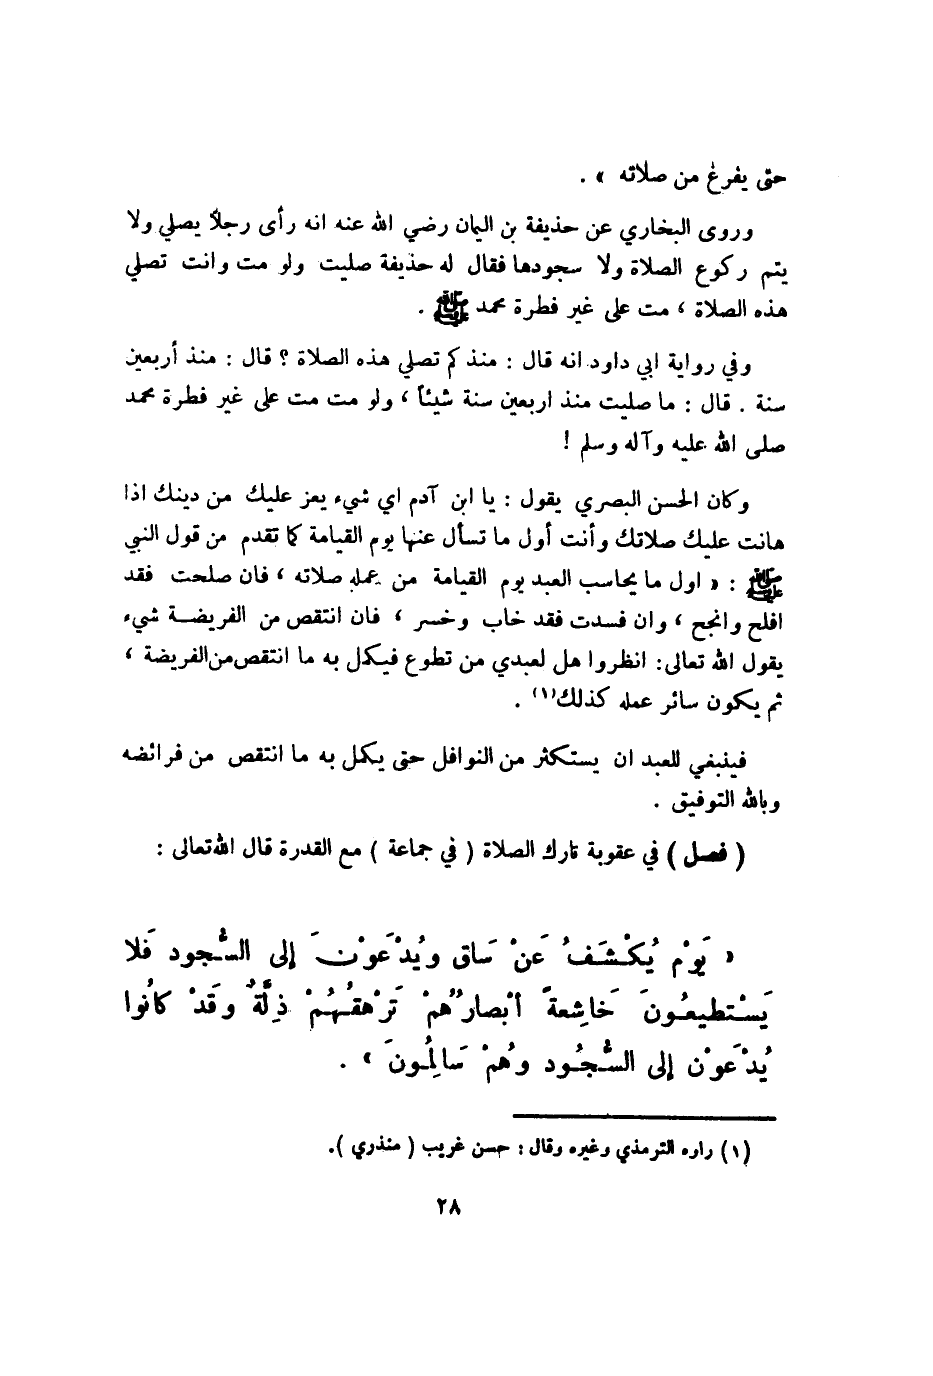 حتى يفرغ من صلاته » .
وروى البخاري عن حذيفة بن اليمان رضي الله عنه انه رأى رجلاً يصلي ولا
يتم ركوع الصلاة ولا سجودها فقال له حذيفة صليت ولو مت وانت تصلي
هذه الصلاة ، مت على غير فطرة محمد ﷺ .
وفي رواية ابي داود انه قال : منذ كم تصلي هذه الصلاة ؟ قال : منذ أربعين
سنة . قال : ما صليت منذ اربعين سنة شيئاً ، ولو مت مت على غير فطرة محمد
صلى الله عليه وآله وسلم !
وكان الحسن البصري يقول : يا ابن آدم اي شيء يعز عليك من دينك اذا
هانت عليك صلاتك وأنت أول ما تسأل عنها يوم القيامة كما تقدم من قول النبي
ﷺ : « اول ما يحاسب العبد يوم القيامة من عمله صلاته ، فان صلحت فقد
افلح وانجح ، وان فسدت فقد خاب وخسر ، فان انتقص من الفريضة شيء
يقول الله تعالى: انظروا هل لعبدي من تطوع فيكمل به ما انتقص من الفريضة ،
ثم يكون سائر عمله كذلك(١) .
فينبغي للعبد ان يستكثر من النوافل حتى يكمل به ما انتقص من فرائضه
وبالله التوفيق .
( فصل ) في عقوبة تارك الصلاة ( في جماعة ) مع القدرة قال الله تعالى :
« يَوْم يُكْشَفُ عَنْ سَاق ويُدْعَوْنَ إلى السُّجود فَلا
يَسْتطيعُونَ خَاشِعةً أبْصارُهمْ تَرْهقُهُمْ ذِلَّةٌ وقَدْ كانُوا
يُدْعَوْن إلى السُّجُود وهُمْ سَالِمُونَ » .
(١) راره الترمذي وغيره وقال : حسن غريب ( منذري ).
٢٨